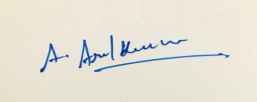 A. Arulkumar